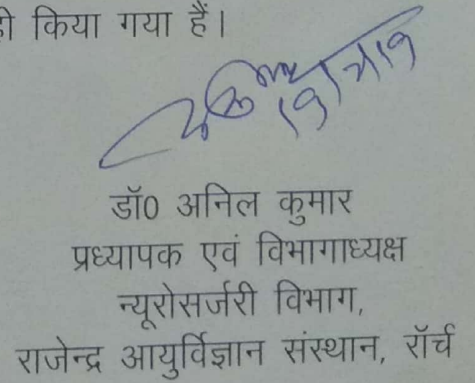 किया गया हैं।
डॉ0 अनिल कुमार
प्रध्यापक एवं विभागाध्यक्ष
न्यूरोसर्जरी विभाग,
राजेन्द्र आयुर्विज्ञान संस्थान, रॉर्च